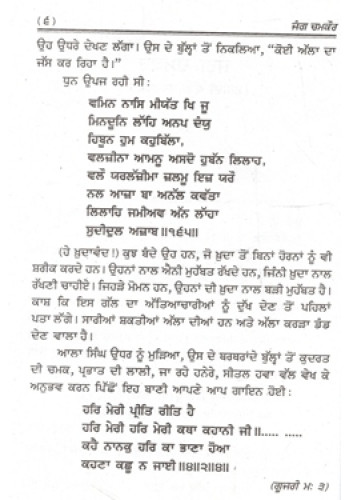 (੬) ਜੰਗ ਚਮਕੌਰ
ਉਹ ਉਧਰੇ ਦੇਖਣ ਲੱਗਾ। ਉਸ ਦੇ ਬੁੱਲ੍ਹਾਂ ਤੋਂ ਨਿਕਲਿਆ, "ਕੋਈ ਅੱਲਾ ਦਾ
ਜੱਸ ਕਰ ਰਿਹਾ ਹੈ।"
ਧੁਨ ਉਪਜ ਰਹੀ ਸੀ :
ਵਮਿਨ ਨਾਸਿ ਮੀਯੱਤ ਖਿ ਜੂ
ਮਿਨਦੂਨਿ ਲਾੱਹਿ ਅਨਪ ਦੰਯੂ
ਹਿਬੂਨ ਹੁਮ ਕਹੁਬਿੱਲਾ,
ਵਲਜ਼ੀਨਾ ਆਮਨੂ ਅਸਦੋ ਹੁਬੱਨ ਲਿਲਾਹ,
ਵਲੌ ਯਰਲੱਜ਼ੀਮਾ ਜ਼ਲਮੂ ਇਜ਼ ਯਰੌ
ਨਲ ਆਜ਼ਾ ਬਾ ਅਨੱਲ ਕਵੱਤਾ
ਲਿਲਾਹਿ ਜਮੀਅਵ ਅੱਨ ਲਾੱਹਾ
ਸ਼ੁਦੀਦੁਲ ਅਜ਼ਾਬ॥੧੬੫॥
(ਹੇ ਖ਼ੁਦਾਵੰਦ!) ਕੁਝ ਬੰਦੇ ਉਹ ਹਨ, ਜੋ ਖ਼ੁਦਾ ਤੋਂ ਬਿਨਾਂ ਹੋਰਨਾਂ ਨੂੰ ਵੀ
ਸ਼ਰੀਕ ਕਰਦੇ ਹਨ। ਉਹਨਾਂ ਨਾਲ ਐਨੀ ਮੁਹੱਬਤ ਰੱਖਦੇ ਹਨ, ਜਿੰਨੀ ਖ਼ੁਦਾ ਨਾਲ
ਰੱਖਣੀ ਚਾਹੀਏ। ਜਿਹੜੇ ਮੋਮਨ ਹਨ, ਉਹਨਾਂ ਦੀ ਖ਼ੁਦਾ ਨਾਲ ਬੜੀ ਮੁਹੱਬਤ ਹੈ।
ਕਾਸ਼ ਕਿ ਇਸ ਗੱਲ ਦਾ ਅੱਤਿਆਚਾਰੀਆਂ ਨੂੰ ਦੁੱਖ ਦੇਣ ਤੋਂ ਪਹਿਲਾਂ
ਪਤਾ ਲੱਗੇ। ਸਾਰੀਆਂ ਸ਼ਕਤੀਆਂ ਅੱਲਾ ਦੀਆਂ ਹਨ ਅਤੇ ਅੱਲਾ ਕਰੜਾ ਡੰਡ
ਦੇਣ ਵਾਲਾ ਹੈ।
ਆਲਾ ਸਿੰਘ ਉਧਰ ਨੂੰ ਮੁੜਿਆ, ਉਸ ਦੇ ਬਰਬਰਾਂਦੇ ਬੁੱਲ੍ਹਾਂ ਤੋਂ ਕੁਦਰਤ
ਦੀ ਚਮਕ, ਪ੍ਰਭਾਤ ਦੀ ਲਾਲੀ, ਜਾ ਰਹੇ ਹਨੇਰੇ, ਸੀਤਲ ਹਵਾ ਵੱਲ ਵੇਖ ਕੇ
ਅਨੁਭਵ ਕਰਨ ਪਿੱਛੋਂ ਇਹ ਬਾਣੀ ਆਪਣੇ ਆਪ ਗਾਇਨ ਹੋਈ:
ਹਰਿ ਮੇਰੀ ਪ੍ਰੀਤਿ ਰੀਤਿ ਹੈ
ਹਰਿ ਮੇਰੀ ਹਰਿ ਮੇਰੀ ਕਥਾ ਕਹਾਨੀ ਜੀ॥..... .....
ਕਹੈ ਨਾਨਕੁ ਹਰਿ ਕਾ ਭਾਣਾ ਹੋਆ
ਕਹਣਾ ਕਛੂ ਨ ਜਾਈ॥੪॥੨॥੪॥
(ਗੂਜਰੀ ਮ: ੩)